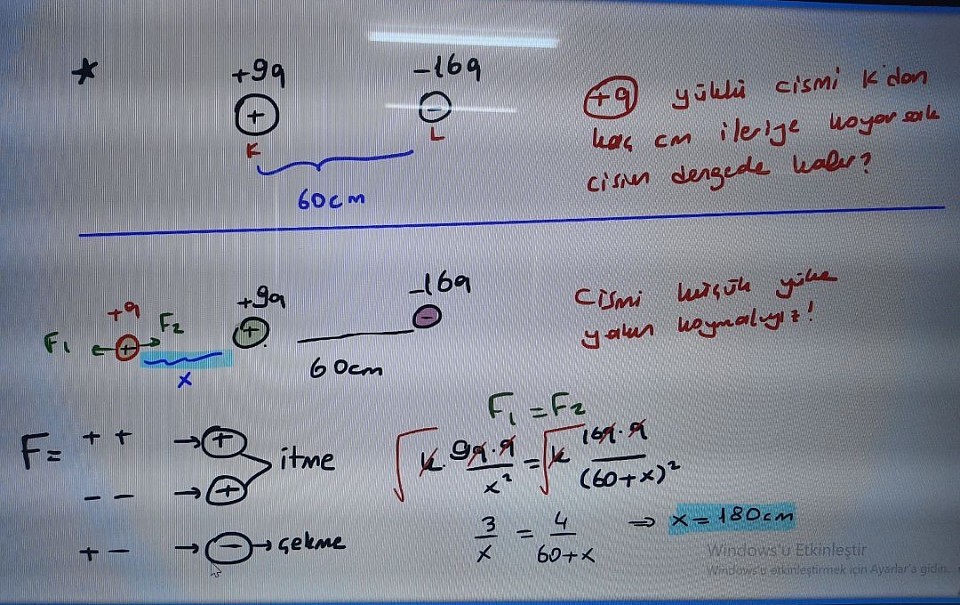 * +9q -16q
+ -
K L
60cm
+q yüklü cismi K'dan
kaç cm ileriye koyarsak
cisim dengede kalır?
+q +9q -16q
F₁ + F₂ + -
x 60cm
Cismi küçük yüke
yakın koymalıyız!
F= + + → + itme
- - → +
+ - → - → çekme
F₁ = F₂
√k·9q·q/x² = √k 16q·q/(60+x)²
3/x = 4/(60+x) ⇒ x = 180cm
Windows'u Etkinleştir
Windows'u etkinleştirmek için Ayarlar'a gidin.